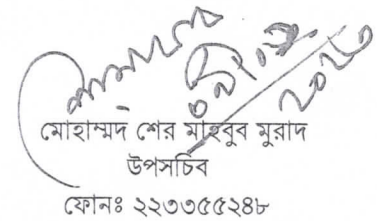 মোহাম্মদ শের মাহবুব মুরাদ
উপসচিব
ফোনঃ ২২৩৩৫৫২৪৮